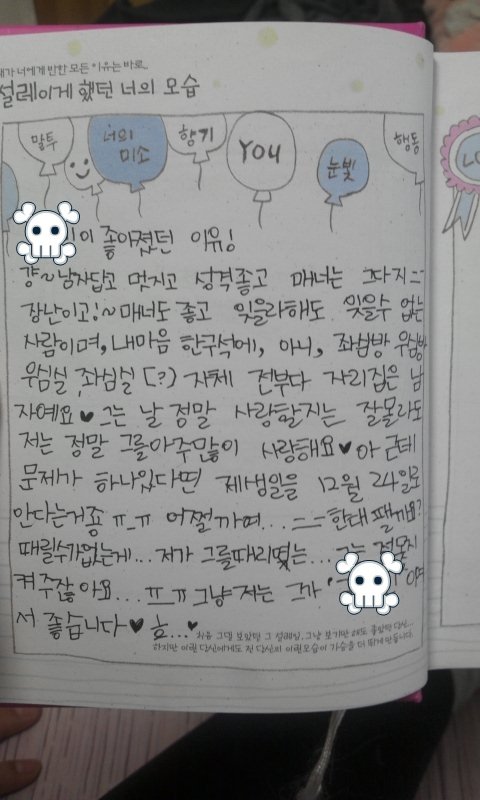 내가 너에게 반한 모든 이유는 바로..
설레이게 했던 너의 모습
말투
너의 미소
향기
YOU
눈빛
행동
이 좋아졌던 이유!
걍~ 남자답고 멋지고 성격좋고 매너는 그다지=_=
장난이고!~매너도 좋고 잊을라해도 잊을수 없는
사람이며, 내마음 한구석에, 아니, 좌심방 우심방
우심실, 좌심실 (?) 자체 전부다 자리잡은 남
자예요♥ 그는 날 정말 사랑할지는 잘몰라도
저는 정말 그를아주많이 사랑해요♥ 아 근데
문제가 하나있다면 제생일을 12월 24일로
안다는거죵 ㅠ_ㅠ 어쩔까여... =_= 한대 팰까요?
때릴수가없는게... 저가 그를때리며는... 그는 절
켜주잖아요... ㅠ_ㅠ 그냥 저는 그가 '
서 좋습니다♥ 호...♥
처음 그댈 보았던 그 설레임, 그냥 보기만 해도 좋았던 당신...
하지만 이런 당신에게도 전 당신의 이런모습이 가슴을 더 뛰게 만듭니다.